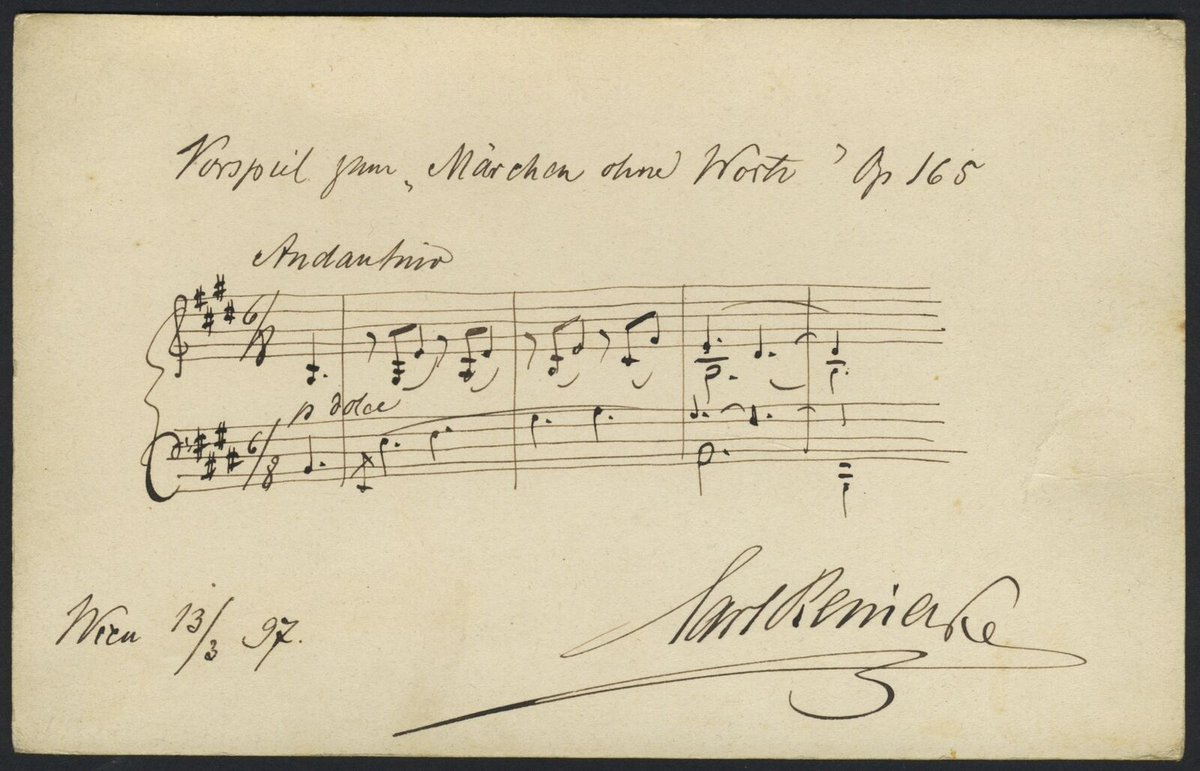 Vorspiel zum „Märchen ohne Worte" Op 165
Andantino
6/8
p dolce
6/8
Wien 13/3 97.
Carl Reinecke